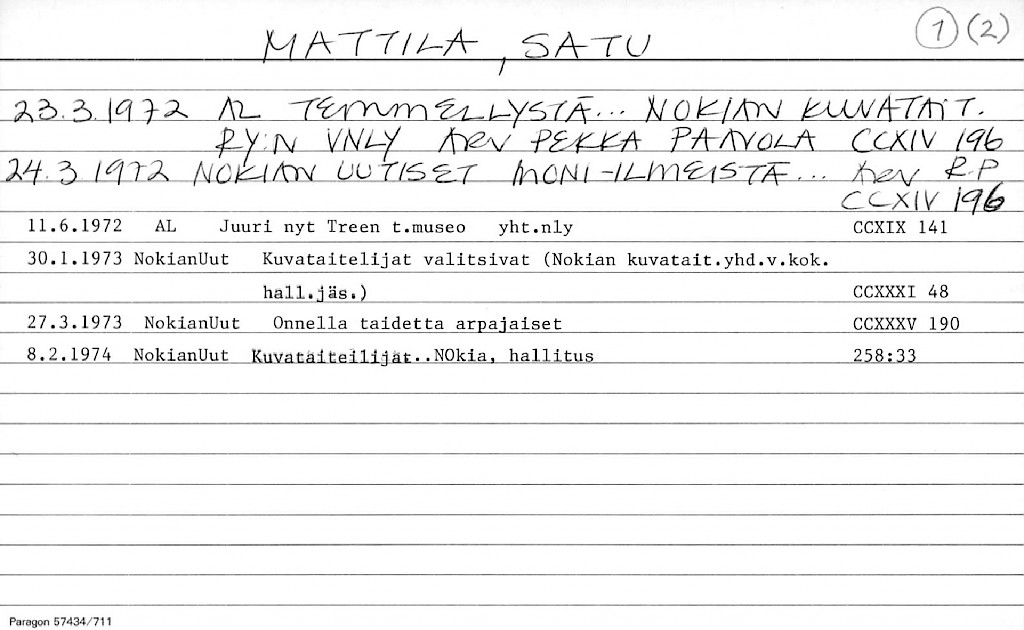 MATTILA, SATU
1 (2)
23.3.1972 AL TEMMELLYSTÄ... NOKIAN KUVATAIT.
RY:N VNLY Arv PEKKA PAAVOLA CCXIV 196
24.3 1972 NOKIAN UUTISET MONI-ILMEISTÄ... Arv R.P
CCXIV 196
11.6.1972 AL Juuri nyt Treen t.museo yht.nly CCXIX 141
30.1.1973 NokianUut Kuvataitelijat valitsivat (Nokian kuvatait.yhd.v.kok.
hall.jäs.) CCXXXI 48
27.3.1973 NokianUut Onnella taidetta arpajaiset CCXXXV 190
8.2.1974 NokianUut Kuvataiteilijat..NOkia, hallitus 258:33
Paragon 57434/711